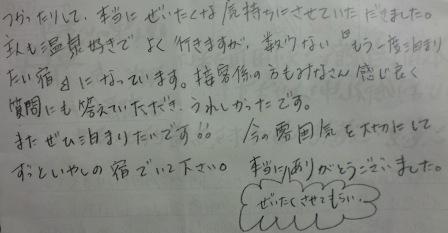 つかったりして、本当にぜいたくな気持ちにさせていただきました。
主人も温泉好きでよく行きますが、数少ない『もう一度泊まり
たい宿』になっています。接客係の方もみなさん感じ良く
質問にも答えていただき、うれしかったです。
またぜひ泊まりたいです!! 今の雰囲気を大切にして
ずっといやしの宿でいて下さい。本当にありがとうございました。
ぜいたくさせてもらい、